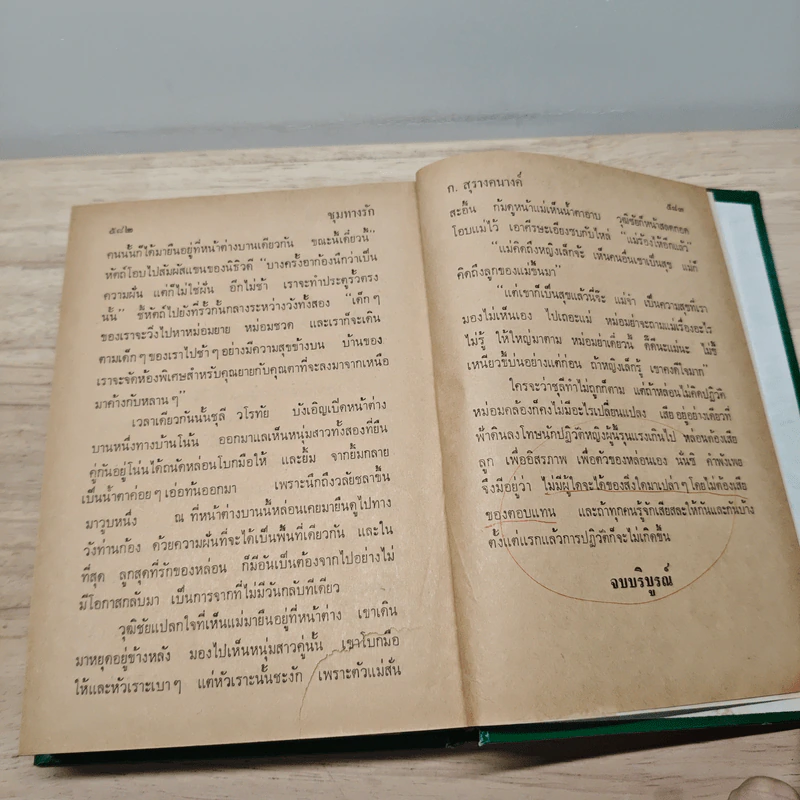 ๕๗๒
ชุมทางรัก
คนนั้นก็ได้มายืนอยู่ที่หน้าต่างบานเดียวกัน ขณะนี้เดี๋ยวนี้"
หัตถ์โอบไปสัมผัสแขนของนิธิวดี "บางครั้งอาก้องนึกว่าเป็น
ความฝัน แต่ก็ไม่ใช่ฝัน อีกไม่ช้า เราจะทำประตูรั้วตรง
นั้น" ชี้หัตถ์ไปยังที่รั้วกั้นกลางระหว่างวังทั้งสอง "เด็กๆ
ของเราจะวิ่งไปหาหม่อมยาย หม่อมชวด และเราก็จะเดิน
ตามเด็กๆของเราไปช้าๆอย่างมีความสุขข้างบน บ้านของ
เราจะจัดห้องพิเศษสำหรับคุณยายกับคุณตาที่จะลงมาจากเหนือ
มาค้างกับหลานๆ"
เวลาเดียวกันนั้นชุลี วโรทัย บังเอิญเปิดหน้าต่าง
บานหนึ่งทางบ้านโน้น ออกมาแลเห็นหนุ่มสาวทั้งสองที่ยืน
คู่กันอยู่โน่นได้ถนัดหล่อนโบกมือให้ และยิ้ม จากยิ้มกลาย
เป็นน้ำตาค่อยๆเอ่อท้นออกมา เพราะนึกถึงวลัยชลาขึ้น
มาวูบหนึ่ง ณ ที่หน้าต่างบานนี้หล่อนเคยมายืนดูไปทาง
วังท่านก้อง ด้วยความฝันที่จะได้เป็นพื้นที่เดียวกัน และใน
ที่สุด ลูกสุดที่รักของหล่อน ก็มีอันเป็นต้องจากไปอย่างไม่
มีโอกาสกลับมา เป็นการจากที่ไม่มีวันกลับทีเดียว
วุฒิชัยแปลกใจที่เห็นแม่มายืนอยู่ที่หน้าต่าง เขาเดิน
มาหยุดอยู่ข้างหลัง มองไปเห็นหนุ่มสาวคู่นั้น เขาโบกมือ
ให้และหัวเราะเบาๆ แต่หัวเราะนั้นชะงัก เพราะตัวแม่สั่น
ก. สุรางคนางค์
๕๗๓
สะอื้น ก้มดูหน้าแม่เห็นน้ำตาอาบ วุฒิชัยก็หน้าสลดกอด
โอบแม่ไว้ เอาศีรษะเอียงซบกับไหล่ "แม่ร้องไห้อีกแล้ว"
"แม่คิดถึงหญิงเล็กจ้ะ เห็นคนอื่นเขาเป็นสุข แม่ก็
คิดถึงลูกของแม่ขึ้นมา"
"แต่เขาก็เป็นสุขแล้วนี่จ๊ะ แม่จ๋า เป็นความสุขที่เรา
มองไม่เห็นเอง ไปเถอะแม่ หม่อมย่าจะถามแม่เรื่องอะไร
ไม่รู้ ให้ใหญ่มาตาม หม่อมย่าเดี๋ยวนี้ ดีดีนะแม่นะ ไม่ขี้
เหนียวขี้บ่นอย่างแต่ก่อน ถ้าหญิงเล็กรู้ เขาคงดีใจมาก"
ใครจะว่าชุลีทำไม่ถูกก็ตาม แต่ถ้าหล่อนไม่คิดปฏิวัติ
หม่อมคล้องก็คงไม่มีอะไรเปลี่ยนแปลง เสียอยู่อย่างเดียวที่
ฟ้าดินลงโทษนักปฏิวัติหญิงผู้นี้รุนแรงเกินไป หล่อนต้องเสีย
ลูก เพื่ออิสรภาพ เพื่อตัวของหล่อนเอง นั่นซี คำพังเพย
จึงมีอยู่ว่า ไม่มีผู้ใดจะได้ของสิ่งใดมาเปล่าๆโดยไม่ต้องเสีย
ของตอบแทน และถ้าทุกคนรู้จักเสียสละให้กันและกันบ้าง
ตั้งแต่แรกแล้วการปฏิวัติก็จะไม่เกิดขึ้น
จบบริบูรณ์